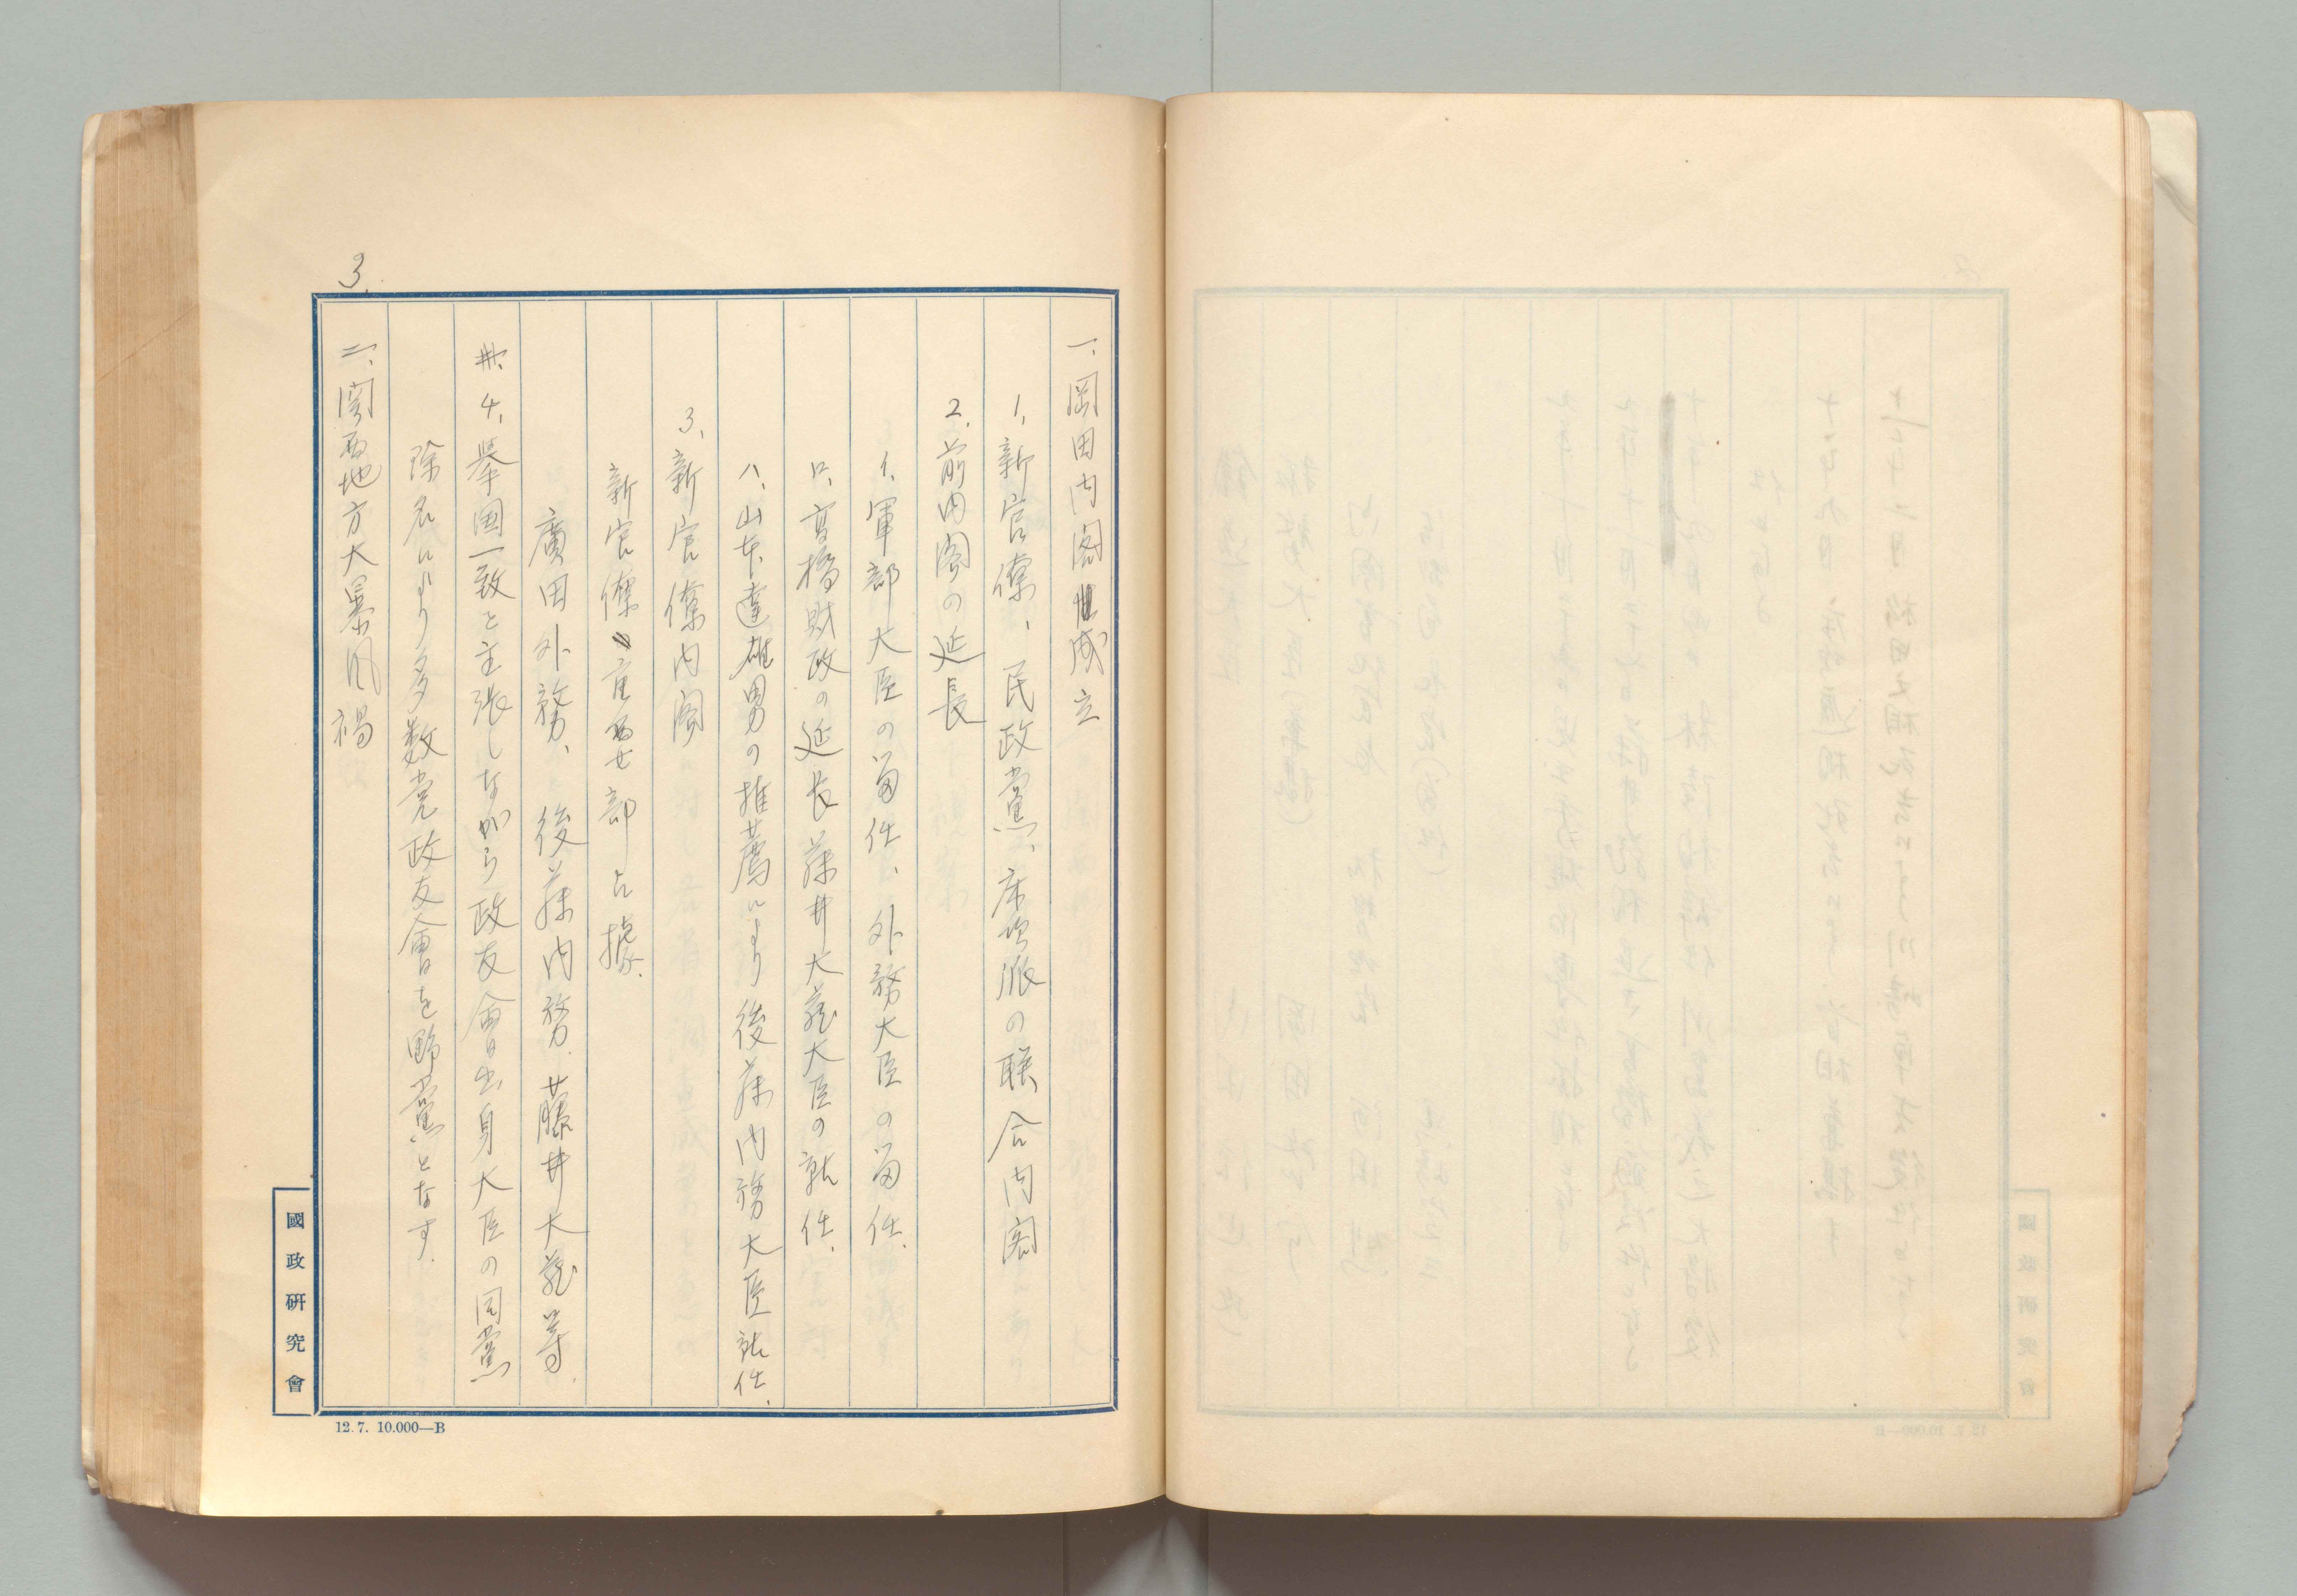 3.
一、岡田内閣成立
1、新官僚、民政黨、床次派の联合内閣
2、前内閣の延長
イ、軍部大臣の留任、外務大臣の留任、
ロ、高橋財政の延長藤井大蔵大臣の就任、
ハ、山本達雄男の推薦により後藤内務大臣就任、
3、新官僚内閣
新官僚重要部占據、
廣田外務、後藤内務、藤井大蔵等、
4、挙国一致と主張しながら政友會出身大臣の同黨
除名により多数党政友會を野黨となす、
二、関西地方大暴風禍
國政研究會
12.7. 10.000—B